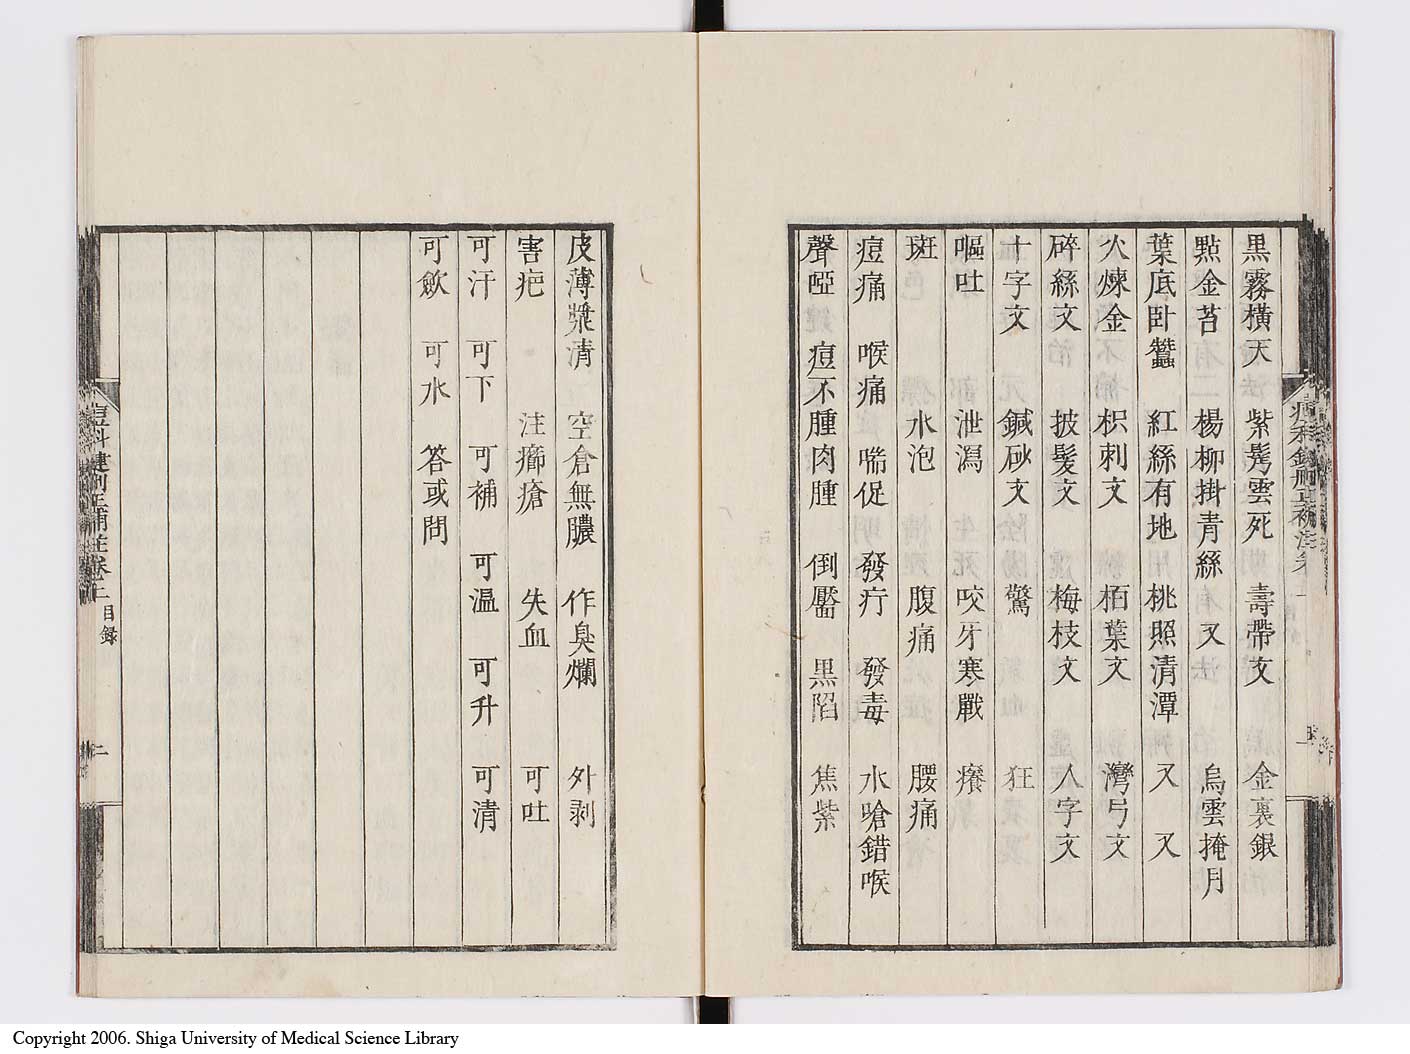 黒霧橫天　紫髣雲死　壽帶文　金裏銀
點金苔　楊柳掛青絲　又　烏雲掩月
葉底卧蠶　紅絲有地　桃照清潭　又　又
火煉金　枳刺文　栢葉文　灣弓文
碎絲文　披髪文　梅枝文　人字文
十字文　鍼砂文　驚　狂
嘔吐　泄瀉　咬牙寒戰　癢
斑　水泡　腹痛　腰痛
痘痛　喉痛　喘促　發疔　發毒　水嗆錯喉
聲啞　痘不腫肉腫　倒靨　黒陷　焦紫
皮薄漿清　空倉無膿　作臭爛　外剥
害疤　注癤瘡　失血　可吐
可汗　可下　可補　可温　可升　可清
可飲　可水　答或問
痘科鍵刪正補註卷二　目録
二
Copyright 2006. Shiga University of Medical Science Library